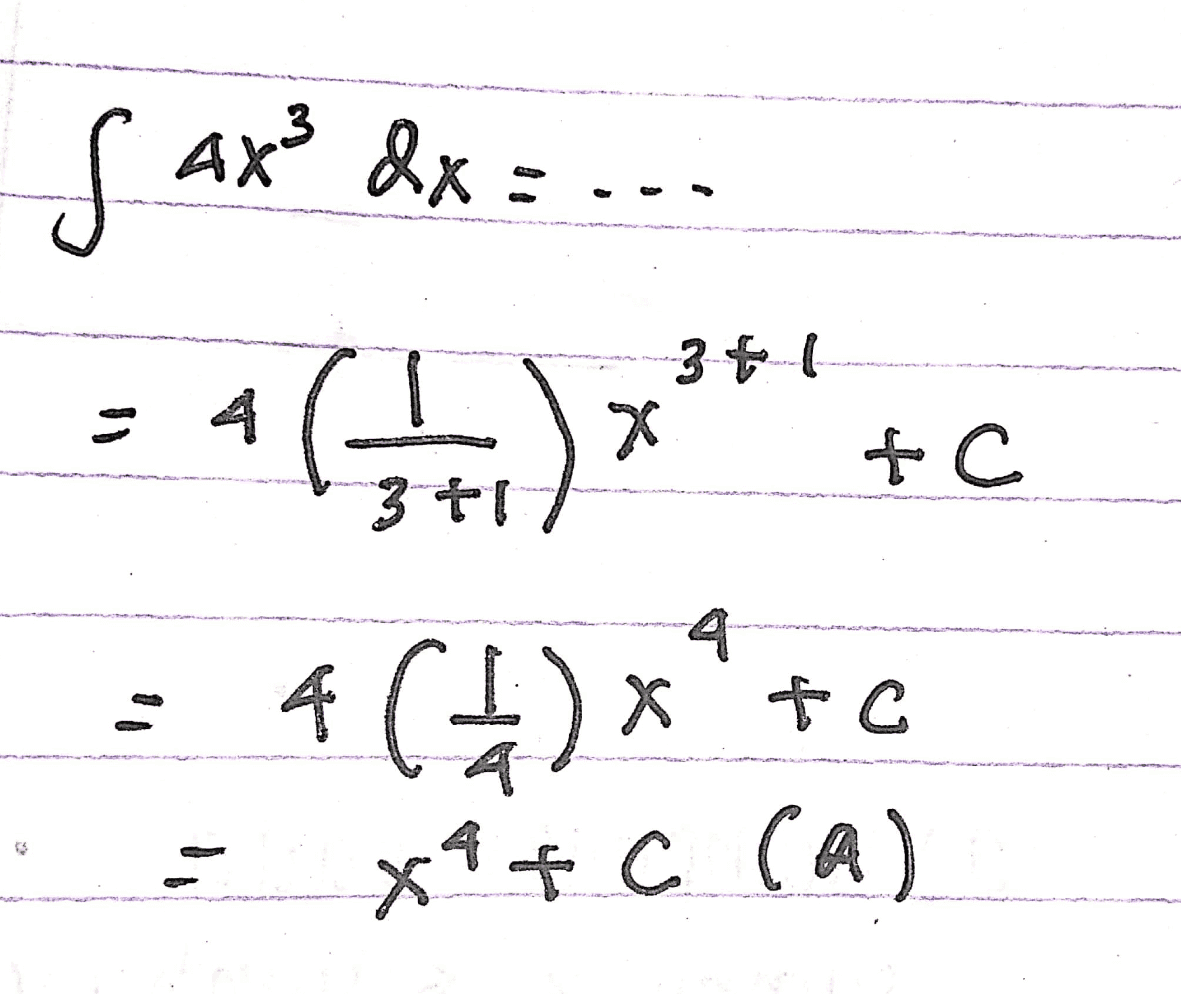 ∫ 4x³ dx = ....
= 4 (1/(3+1)) x³⁺¹ + C
= 4 (1/4) x⁴ + C
= x⁴ + C (A)